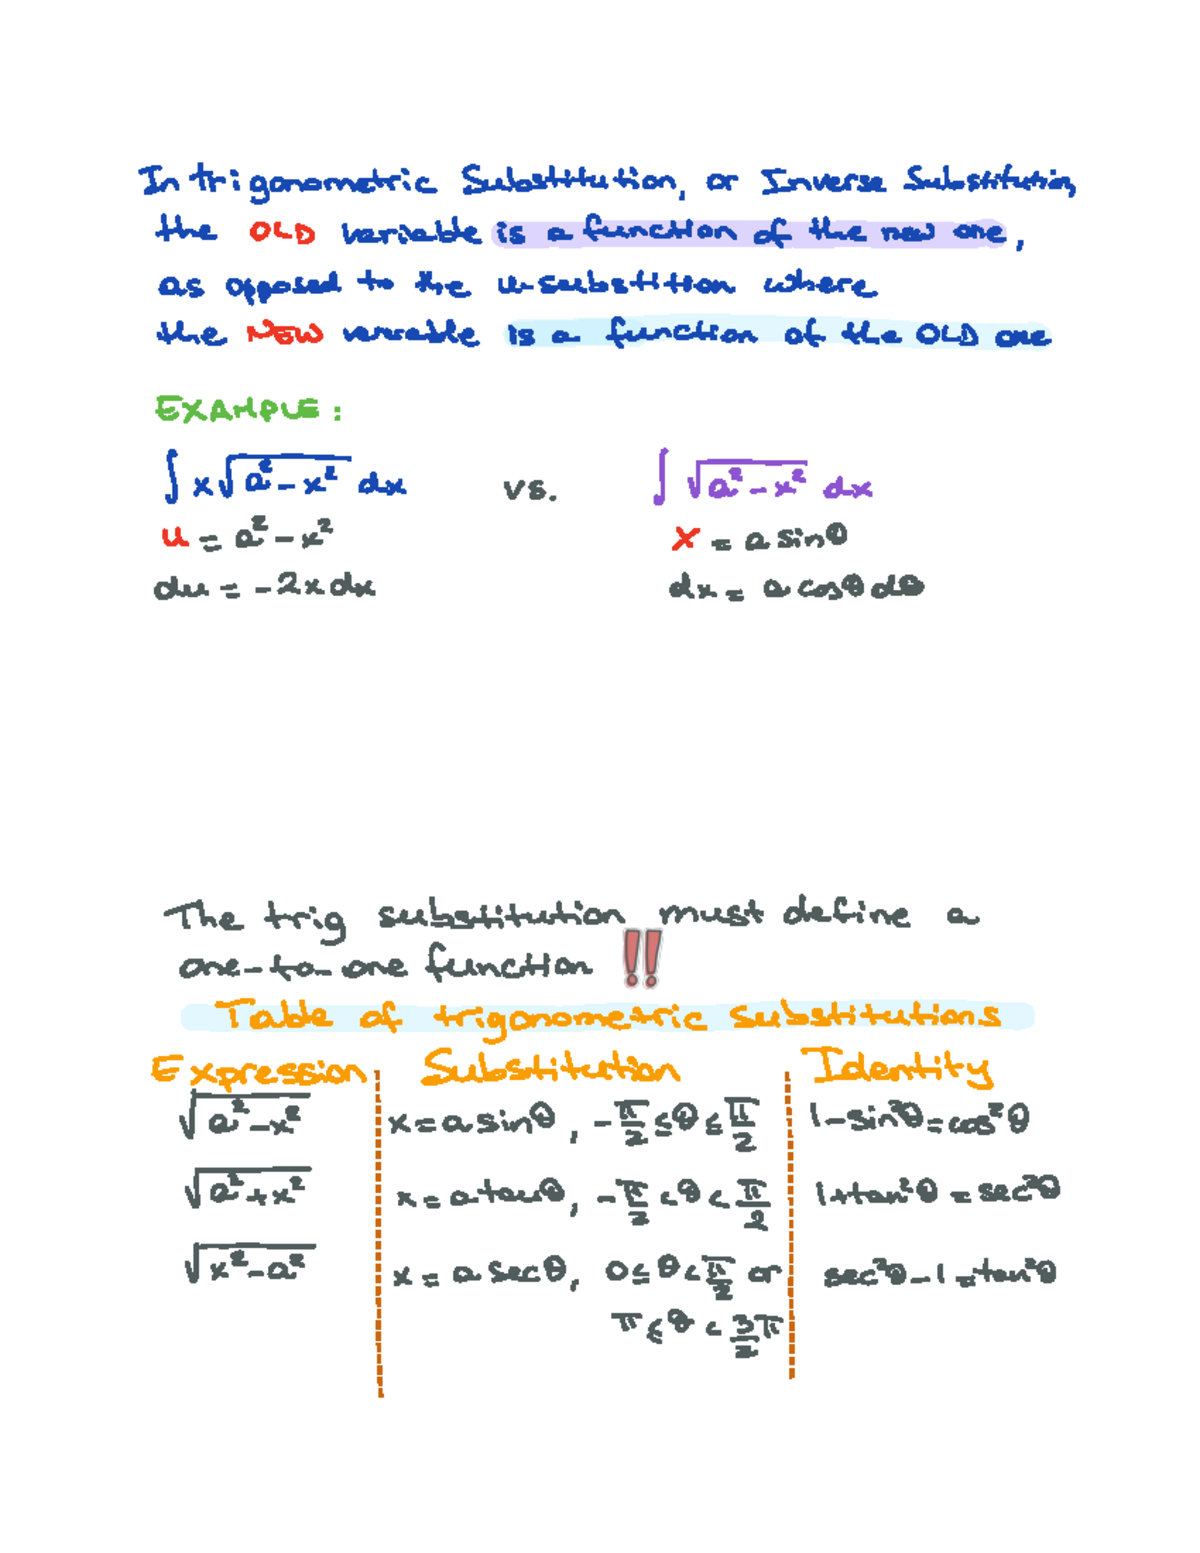 In trigonometric Substitution, or Inverse Substitution,
the OLD variable is a function of the new one,
as opposed to the u-substition where
the NEW variable is a function of the OLD one
EXAMPLE:
∫ x√(a² - x²) dx vs. ∫ √(a² - x²) dx
u = a² - x² x = a sinθ
du = -2x dx dx = a cosθ dθ
The trig substitution must define a
one-to-one function !!
Table of trigonometric substitutions
Expression Substitution Identity
√(a² - x²) x = a sinθ, -π/2 ≤ θ ≤ π/2 1 - sin²θ = cos²θ
√(a² + x²) x = a tanθ, -π/2 < θ < π/2 1 + tan²θ = sec²θ
√(x² - a²) x = a secθ, 0 ≤ θ < π/2 or sec²θ - 1 = tan²θ
π ≤ θ < 3π/2